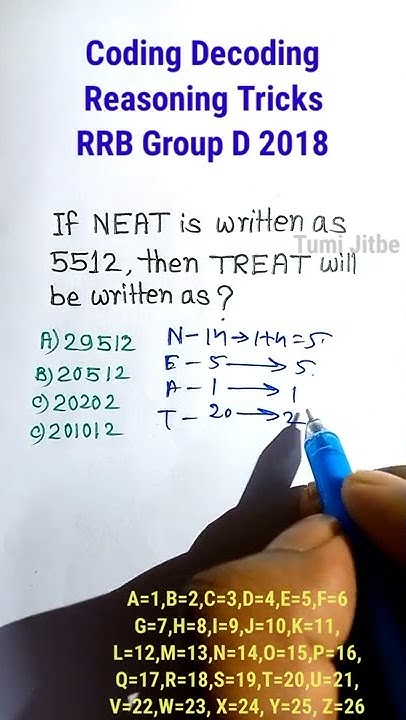 Coding Decoding
Reasoning Tricks
RRB Group D 2018
If NEAT is written as
Tumi Jitbe
5512, then TREAT will
be written as?
A) 29512
B) 20512
C) 20202
C) 201012
N - 14 → 1+4 = 5
E - 5 → 5
A - 1 → 1
T - 20 → 2
A=1,B=2,C=3,D=4,E=5,F=6
G=7,H=8,I=9,J=10,K=11,
L=12,M=13,N=14,O=15,P=16,
Q=17,R=18,S=19,T=20,U=21,
V=22,W=23, X=24, Y=25, Z=26